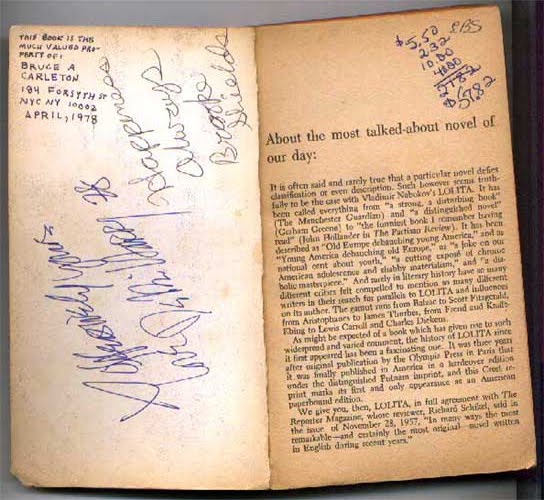 THIS BOOK IS THE
MUCH VALUED PRO-
PERTY OF:
BRUCE A
CARLETON
184 FORSYTH ST
NYC NY 10002
APRIL, 1978
Happiness
Always
Brooke
Shields
$5.50
2.32
10.00
40.00
57.82
$57.82
About the most talked-about novel of
our day:
It is often said and rarely true that a particular novel defies
classification or even description. Such however seems truth-
fully to be the case with Vladimir Nabokov's LOLITA. It has
been called everything from "a strong, a disturbing book"
(The Manchester Guardian) and "a distinguished novel"
(Graham Greene) to "the funniest book I remember having
read" (John Hollander in The Partisan Review). It has been
described as "Old Europe debauching young America," and as
"Young America debauching old Europe," as "a joke on our
national cant about youth," "a cutting exposé of chronic
American adolescence and shabby materialism," and "a dia-
bolic masterpiece." And rarely in literary history have so many
different critics felt compelled to mention so many different
writers in their search for parallels to LOLITA and influences
on its author. The gamut runs from Rabelais to Scott Fitzgerald,
from Aristophanes to James Thurber, from Freud and Krafft-
Ebing to Lewis Carroll and Charles Dickens.
As might be expected of a book which has given rise to such
widespread and varied comment, the history of LOLITA since
it first appeared has been a fascinating one. It was three years
after original publication by the Olympia Press in Paris that
it was finally published in America in a hardcover edition
under the distinguished Putnam imprint, and this Crest re-
print marks its first and only appearance as an American
paperbound edition.
We give you, then, LOLITA, in full agreement with The
Reporter Magazine, whose reviewer, Richard Schickel, said in
the issue of November 28, 1957, "In many ways the most
remarkable—and certainly the most original—novel written
in English during recent years."